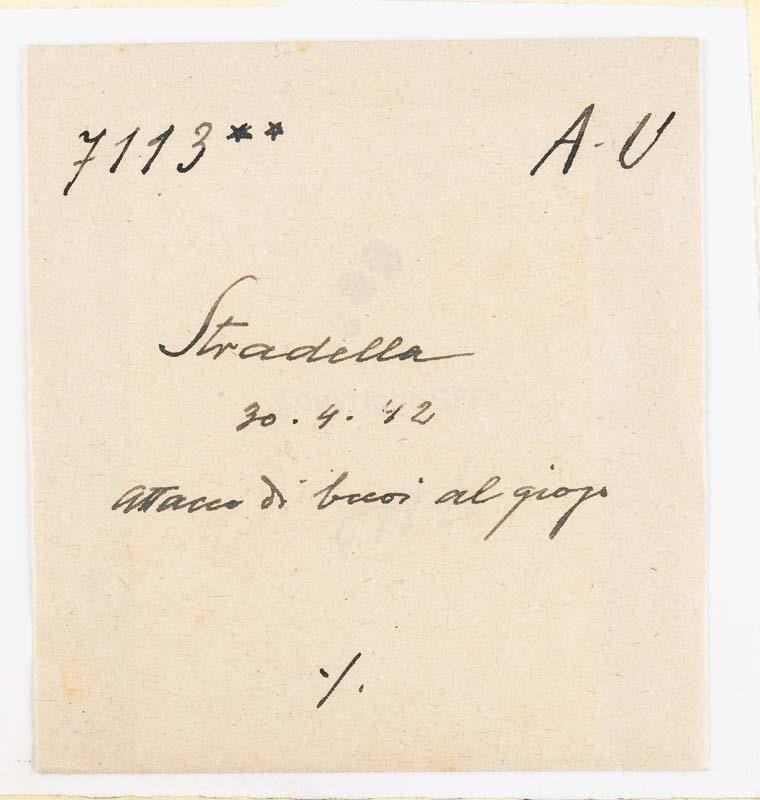 7113** A-U
Stradella
30.4.42
attacco di buoi al giogo
./.